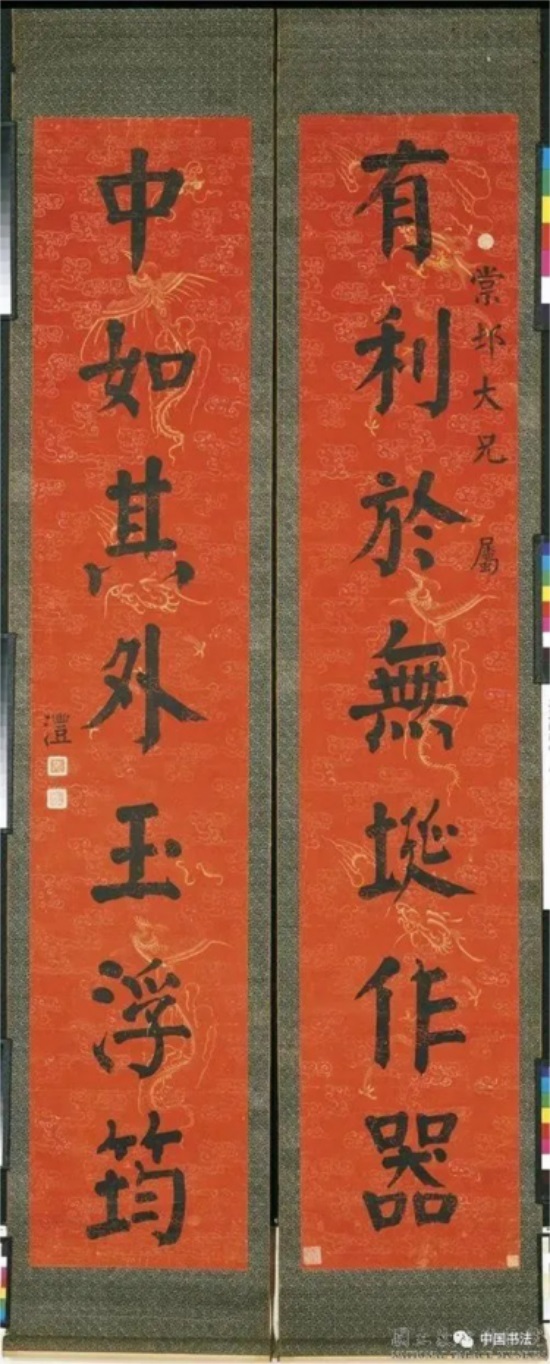 有利於無埏作器
棠邨大兄 屬
中如其外玉浮筠
澧
中国书法